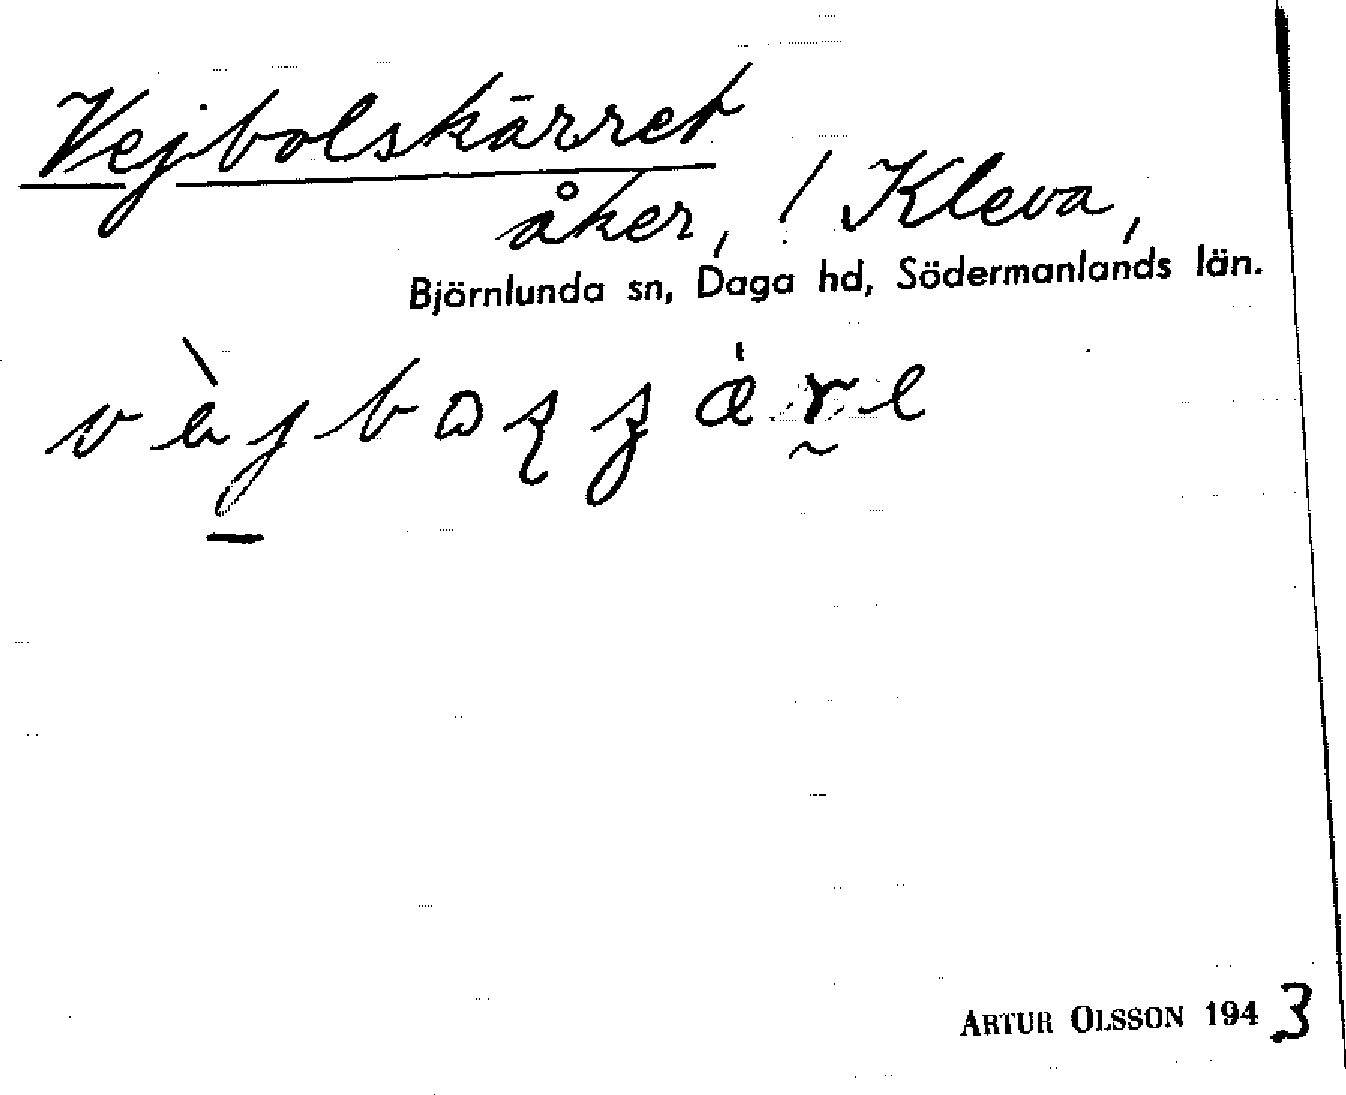 Vejbolskärret
åker, ! Kleva,
Björnlunda sn, Daga hd, Södermanlands län.
ARTUR OLSSON 1943